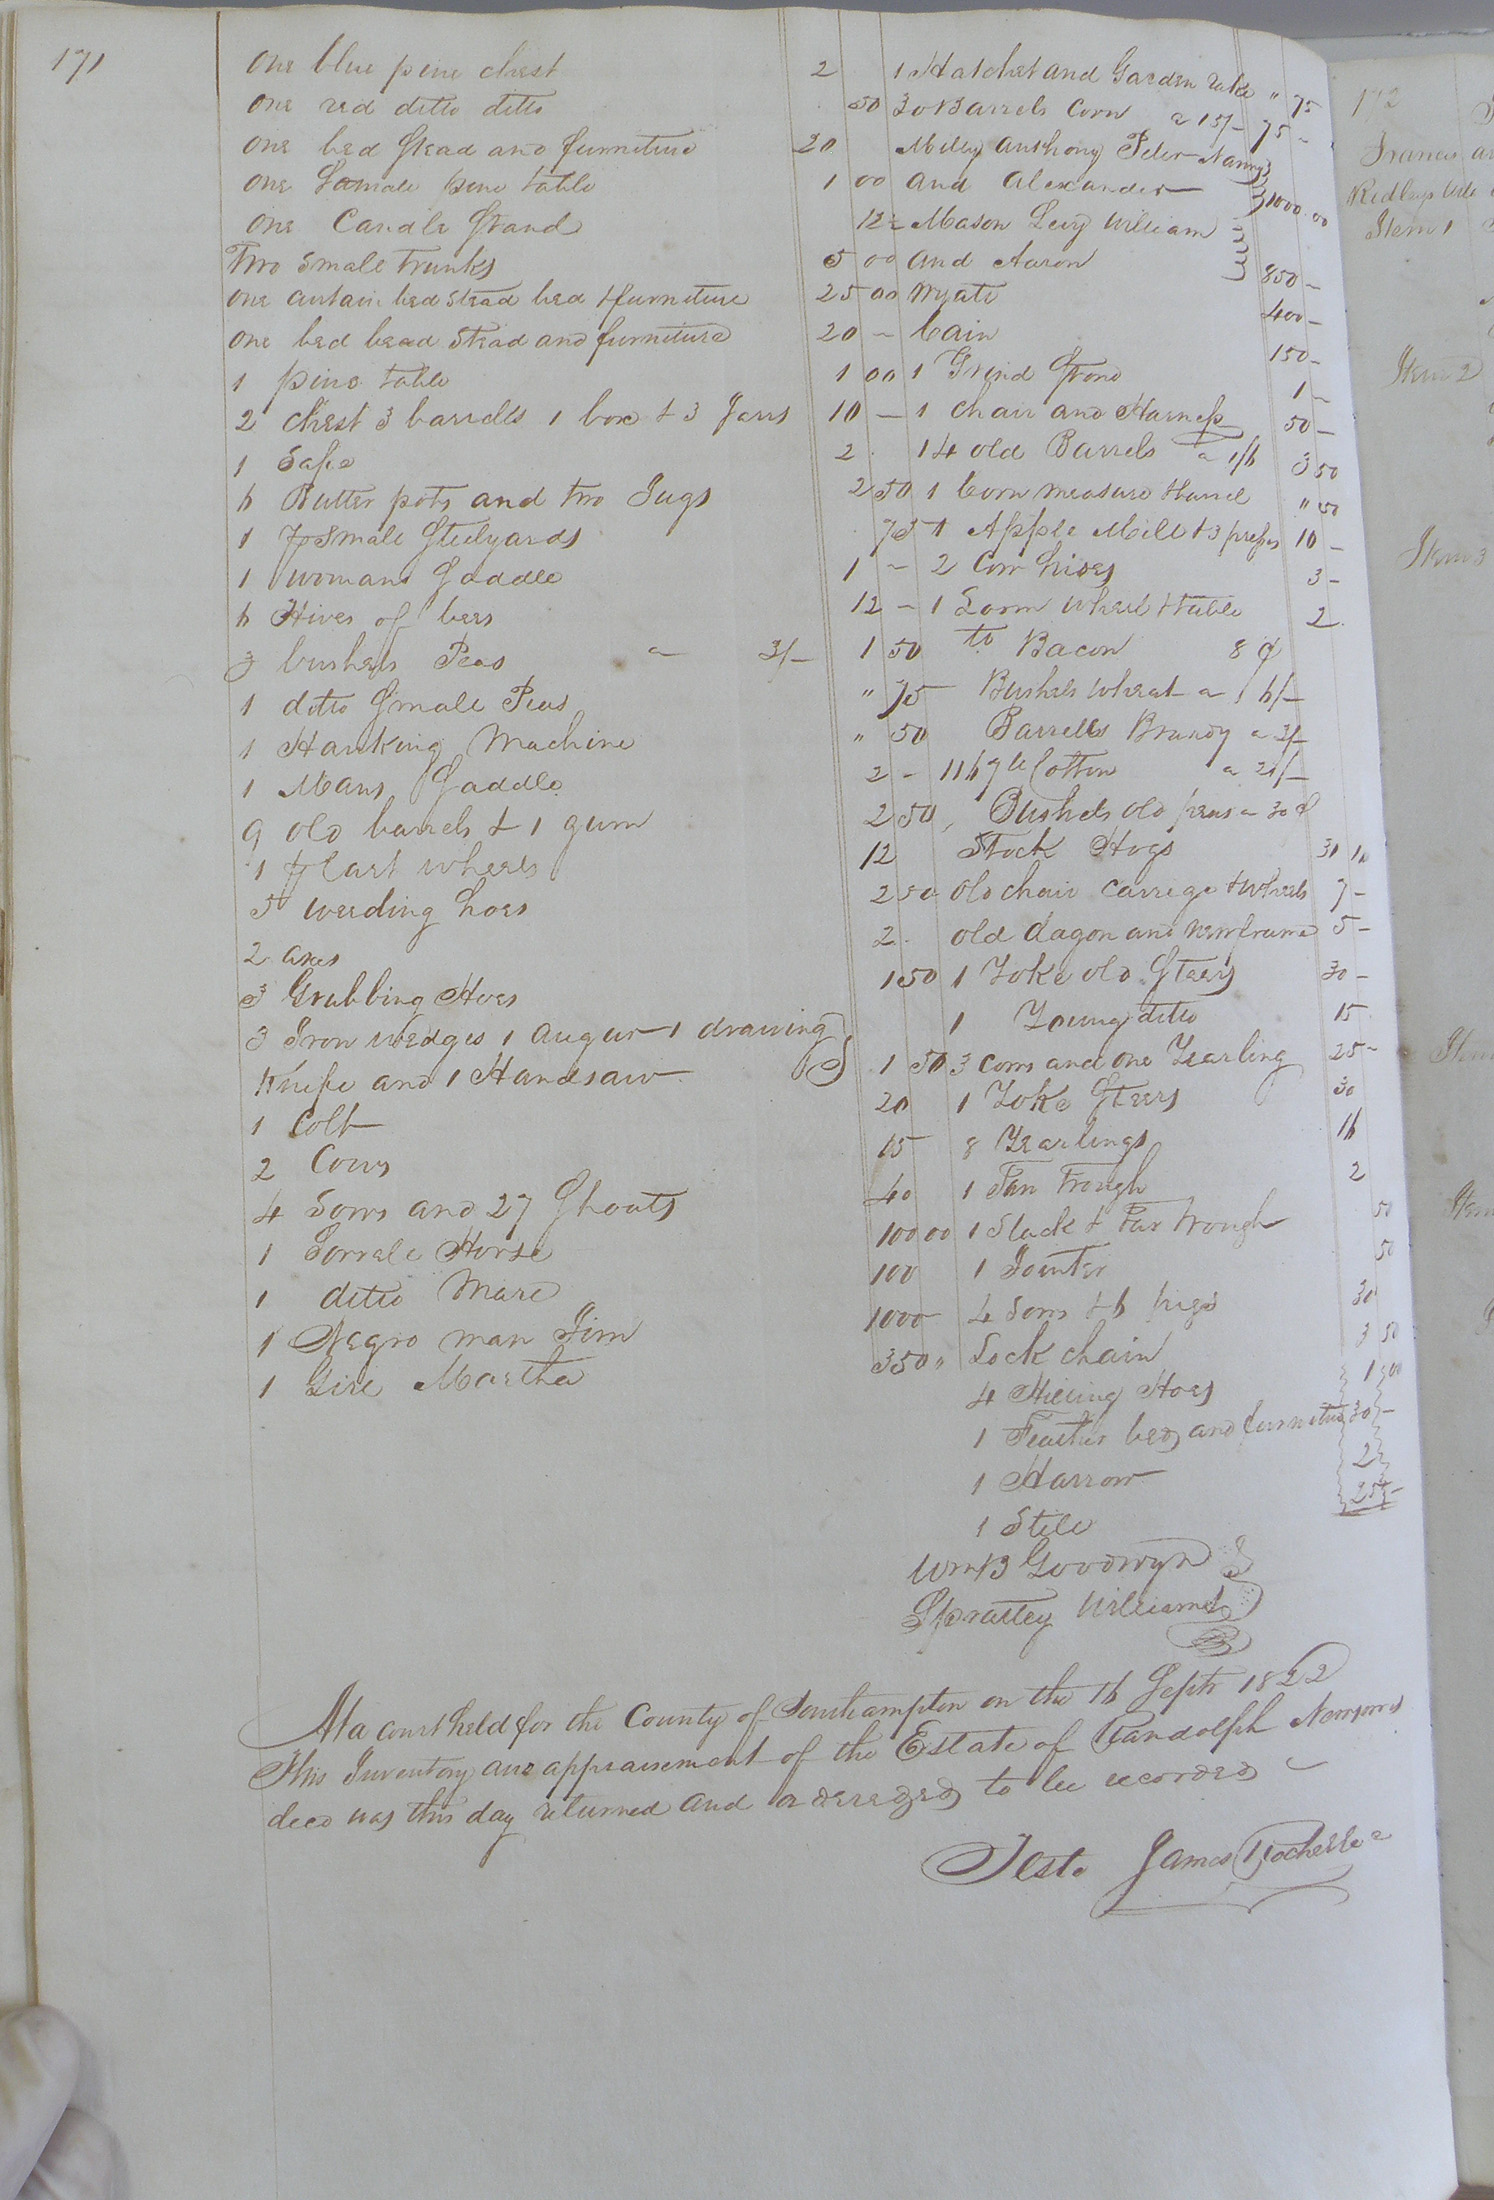 171
one blue pine chest 2
one red ditto ditto 50
one bed stead and furniture 20
one Smale pine table 1 00
one Candle Stand 12½
Two Smale Trunks 5 00
one curtain bed stead bed & furniture 25 00
one bed bead Stead and furniture 20 –
1 pine table 1 00
2 chest 3 barrells 1 box & 3 Jarrs 10 –
1 Safe 2
6 Butter pots and two Jugs 2 50
1 pr Smale Steelyards 75
1 womans Saddle 1 –
6 Hives of bees 12 –
3 bushels Peas a 3/– 1 50
1 ditto Smale Peas " 75
1 Hanking Machine " 50
1 Mans Saddle 2 –
9 old barrels & 1 gum 2 50
1 pr Cart wheels 12
5 weeding hoes 2 50
2 axes 2
3 Grubbing Hoes 1 50
3 Iron wedges 1 augur 1 drawing
Knife and 1 Handsaw 1 50
1 Colt 20
2 Cows 15
4 Sows and 27 Shoats 40
1 Sorrele Horse 100 00
1 ditto Mare 100
1 Negro man Jim 1000
1 Girl Martha 350 "
1 Hatchet and Garden rake " 75
30 Barrels Corn a 15/– 75 –
Miley anthony Peter Nanny
and Alexander 1000.00
Mason Levy William
and Aaron 850 –
Wyatt 400 –
Cain 150 –
1 Grind Stone 1 –
1 chair and Harness 50 –
14 old Barrels a 1/6 3 50
1 Corn measure & barrel " 50
1 Apple Mill & 3 presses 10 –
2 Cow hides 3 –
1 Loom wheel & table 2
to Bacon 8 d
Bushels wheat a 6/–
Barrells Brandy a 3/–
1167 lb Cotton a 21/–
Bushels old peas a 30 d
Stock Hogs 31 10
old chair carrige & wheels 7 –
old Wagon and new frame 5 –
1 Yoke old Steers 30 –
1 Young ditto 15
3 cows and one Yearling 25 –
1 Yoke Steers 30
8 Yearlings 16
1 Tan Trough 2
1 Slack & Tar trough 50
1 Jointer 50
4 Sows & 6 pigs 30
Lock chain 3 50
4 Hilling Hoes 1 00
1 Feather bed and furniture 30 –
1 Harrow 2
1 Still 25 –
Wm B Goodwyn
Spratley Williams
At a court held for the County of Southampton on the 16 Septr 1822
This Inventory and appraisement of the Estate of Randolph Newsoms
decd was this day returned and ordered to be recorded –
Teste James Rochelle
172
Francis
Ridleys
Item 1
Item 2
Item 3